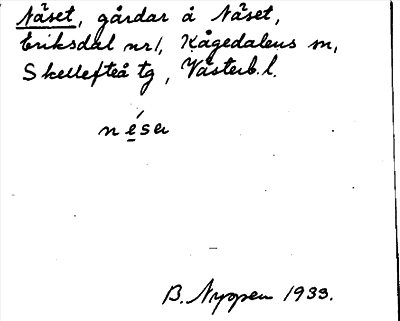 Näset, gårdar å Näset,
Eriksdal nr 1, Kågedalens sn,
Skellefteå tg, Västerb. l.
nésa
B. Nyopen 1933.